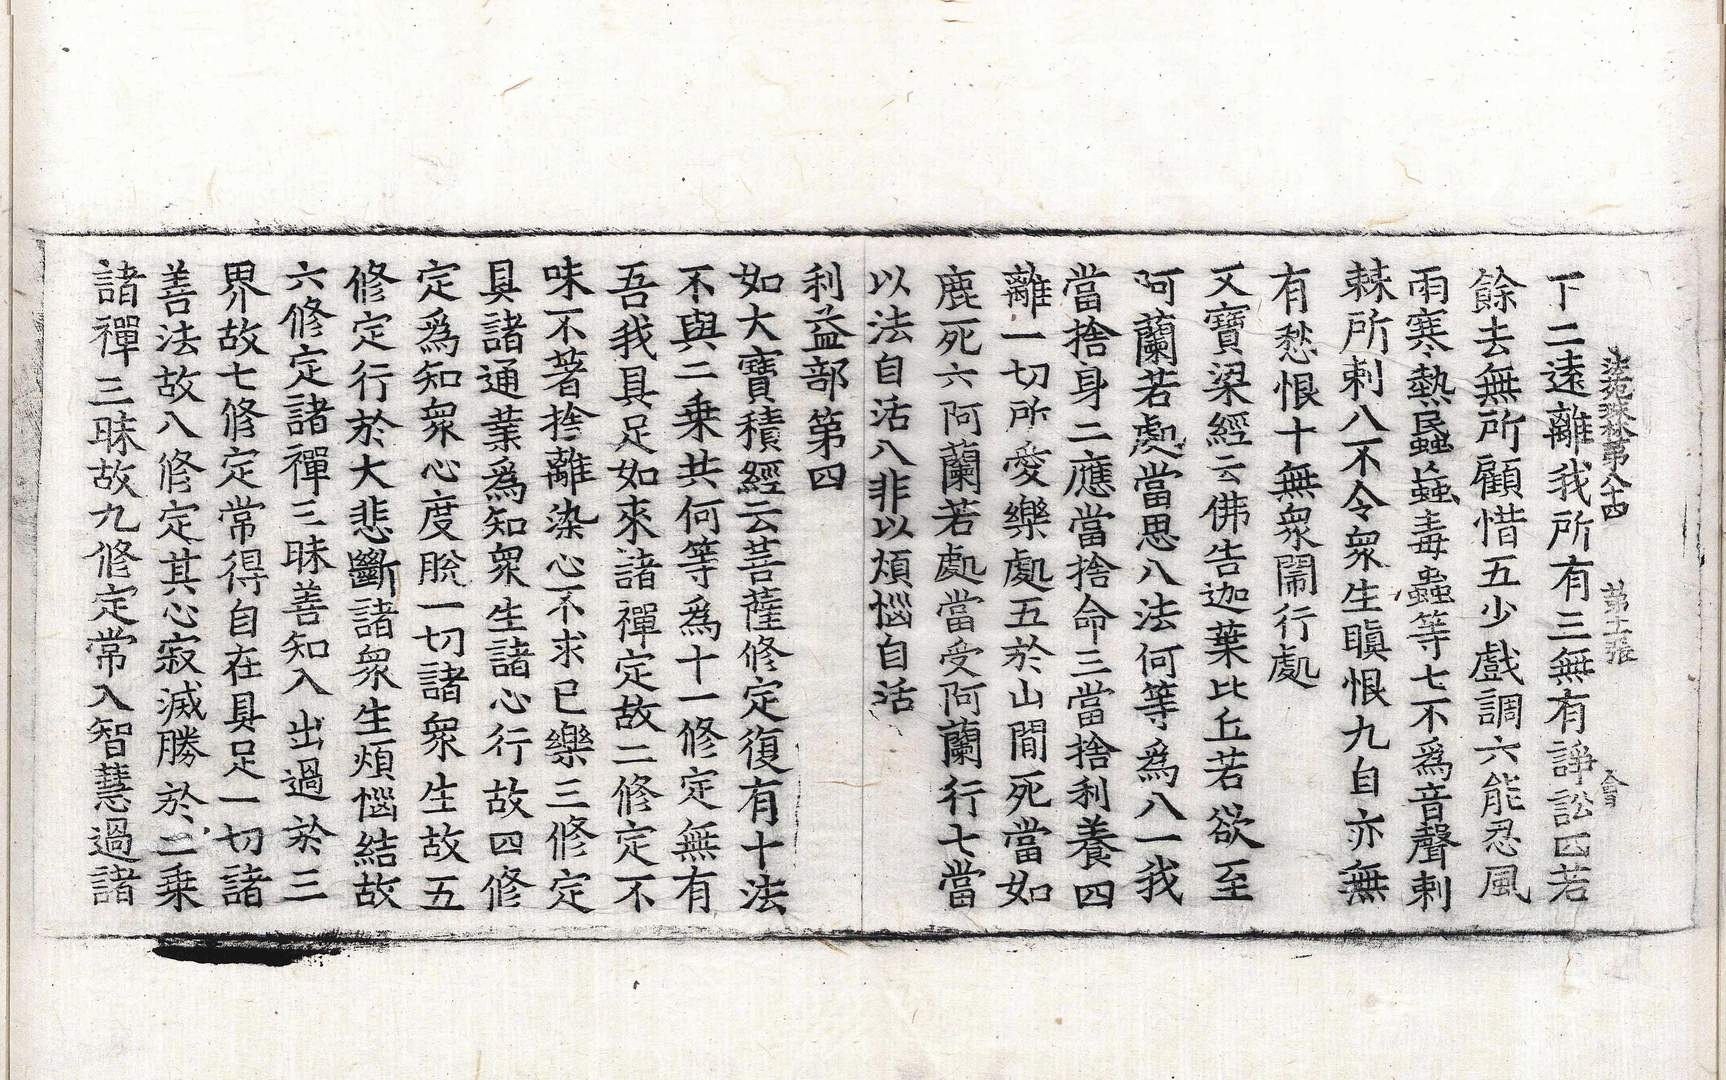 法苑珠林第八十四 第十二張 會
下二遠離我所有三無有諍訟四若
餘去無所顧惜五少戲調六能忍風
雨寒熱蚊䖟毒蟲等七不爲音聲刺
棘所刺八不令衆生瞋恨九自亦無
有愁恨十無衆閙行處
又寶梁經云佛告迦葉比丘若欲至
阿蘭若處當思八法何等爲八一我
當捨身二應當捨命三當捨利養四
離一切所愛樂處五於山間死當如
鹿死六阿蘭若處當受阿蘭行七當
以法自活八非以煩惱自活
利益部第四
如大寶積經云菩薩修定復有十法
不與二乗共何等爲十一修定無有
吾我具足如來諸禪定故二修定不
味不著捨離染心不求已樂三修定
具諸通業爲知衆生諸心行故四修
定爲知衆心度脫一切諸衆生故五
修定行於大悲斷諸衆生煩惱結故
六修定諸禪三昧善知入出過於三
界故七修定常得自在具足一切諸
善法故八修定其心寂滅勝於二乗
諸禪三昧故九修定常入智慧過諸